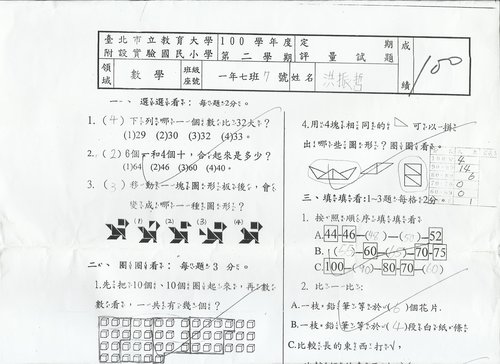 臺北市立教育大學 100學年度 定 期 成
附設實驗國民小學 第二學期 評量試題
100
領域 數學 班級座號 一年七班7號 姓名 洪振哲 績
一、選選看：每題2分。
1.(4)下列哪一個數比32大？
(1)29 (2)30 (3)32 (4)33。
2.(2)6個一和4個十，合起來是多少？
(1)64 (2)46 (3)60 (4)40。
3.(3)移動一塊圖形板後，會
變成哪一種圖形？
(1) (2) (3) (4)
二、圈圈看：每題3分。
1.先把10個、10個圈起來，再數
數看，一共有幾個？
4.用4塊相同的 可以拼
出哪些圖形？圈圈看。
三、填填看：1~3題每格2分。
1. 按照順序填填看
A. 44-46-(48)-(50)-52
B. (55)-60-(65)-70-75
C. 100-(90)-80-70-(60)
2. 比一比：
A.一枝鉛筆等於(6)個花片。
B.一枝鉛筆等於(4)段白紙條
C.比較長的東西打✓，